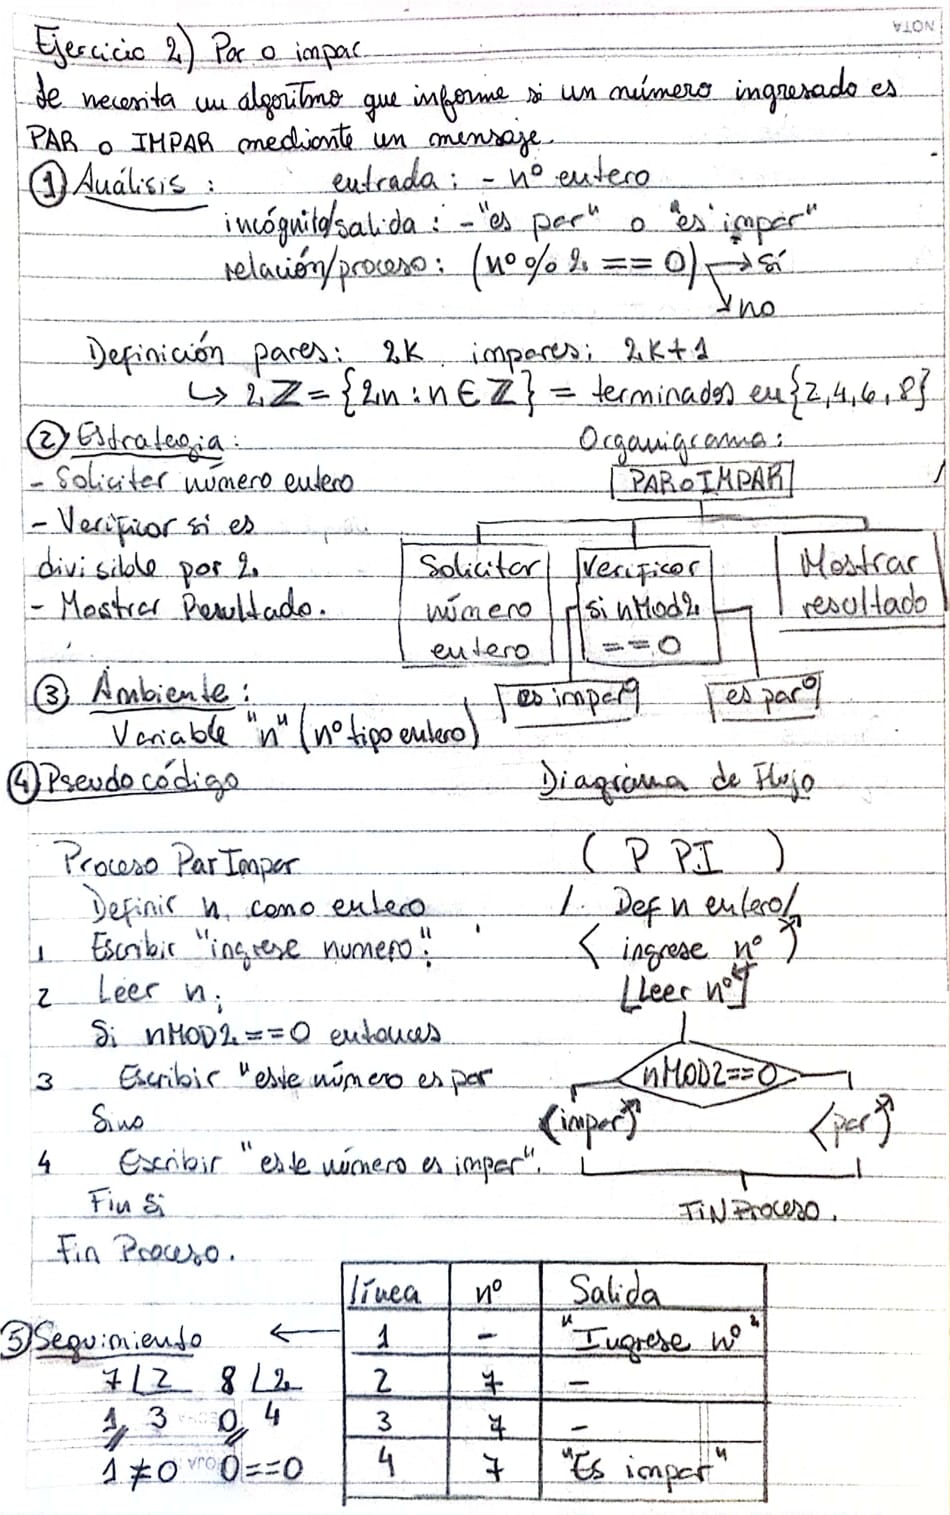 NOTA
Ejercicio 2) Par o impar
Se necesita un algoritmo que informe si un número ingresado es
PAR o IMPAR mediante un mensaje.
① Análisis : entrada : - nº entero
incógnita/salida : - "es par" o "es impar"
relación/proceso : (nº % 2 == 0) → sí
↘ no
Definición pares: 2k impares: 2k+1
↳ 2ℤ = {2n : n ∈ ℤ} = terminados en {2,4,6,8}
② Estrategia :
- Solicitar número entero
- Verificar si es
divisible por 2.
- Mostrar Resultado.
Organigrama :
PAR o IMPAR
Solicitar
número
entero
Verificar
si nMod2
== 0
Mostrar
resultado
es impar
es par
③ Ambiente :
Variable "n" (nº tipo entero)
④ Pseudocódigo
Proceso ParImpar
Definir n como entero
1 Escribir "ingrese numero";
2 Leer n;
Si nMOD2 == 0 entonces
3 Escribir "este número es par
Sino
4 Escribir "este número es impar".
Fin Si
Fin Proceso.
Diagrama de Flujo
( P PI )
/ Def n entero /
< ingrese nº )
[Leer nº]
nMOD2==0
(impar)
<par)
FiN Proceso.
⑤ Seguimiento ←
7 |2 8 |2
1 3 0 4
1 ≠ 0 0 == 0
línea nº Salida
1 - "Ingrese nº"
2 7 -
3 7 -
4 7 "Es impar"